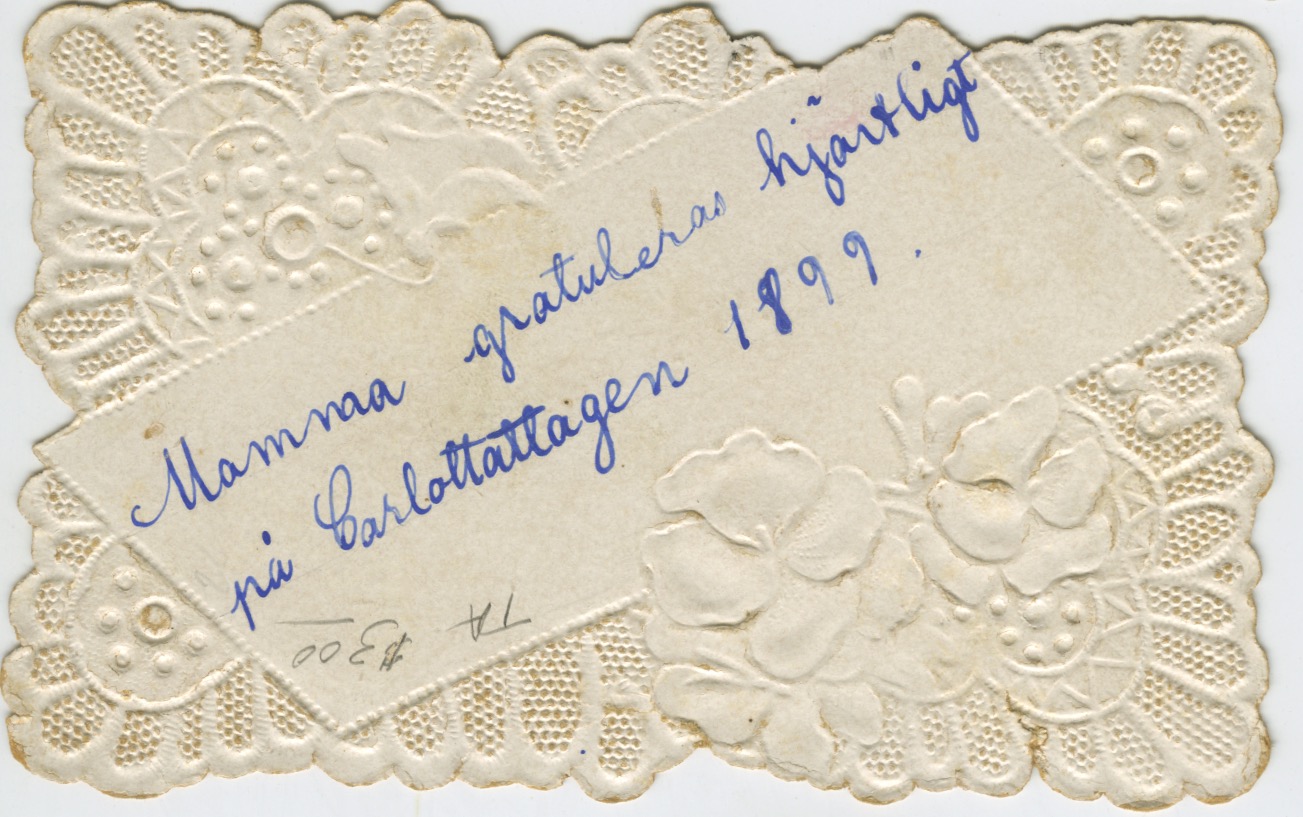 Mamma gratuleras hjärtligt
på Carlottattagen 1899.
TA
$300